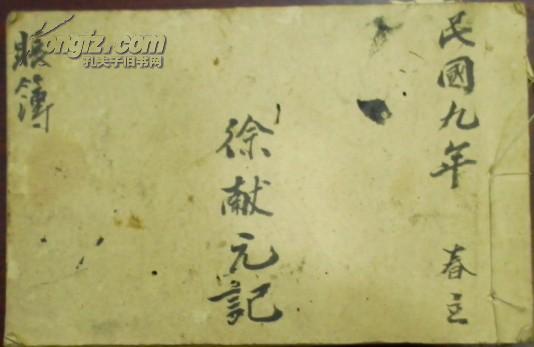 民國九年 春立
徐献元記
賬簿
kongfz.com
孔夫子旧书网